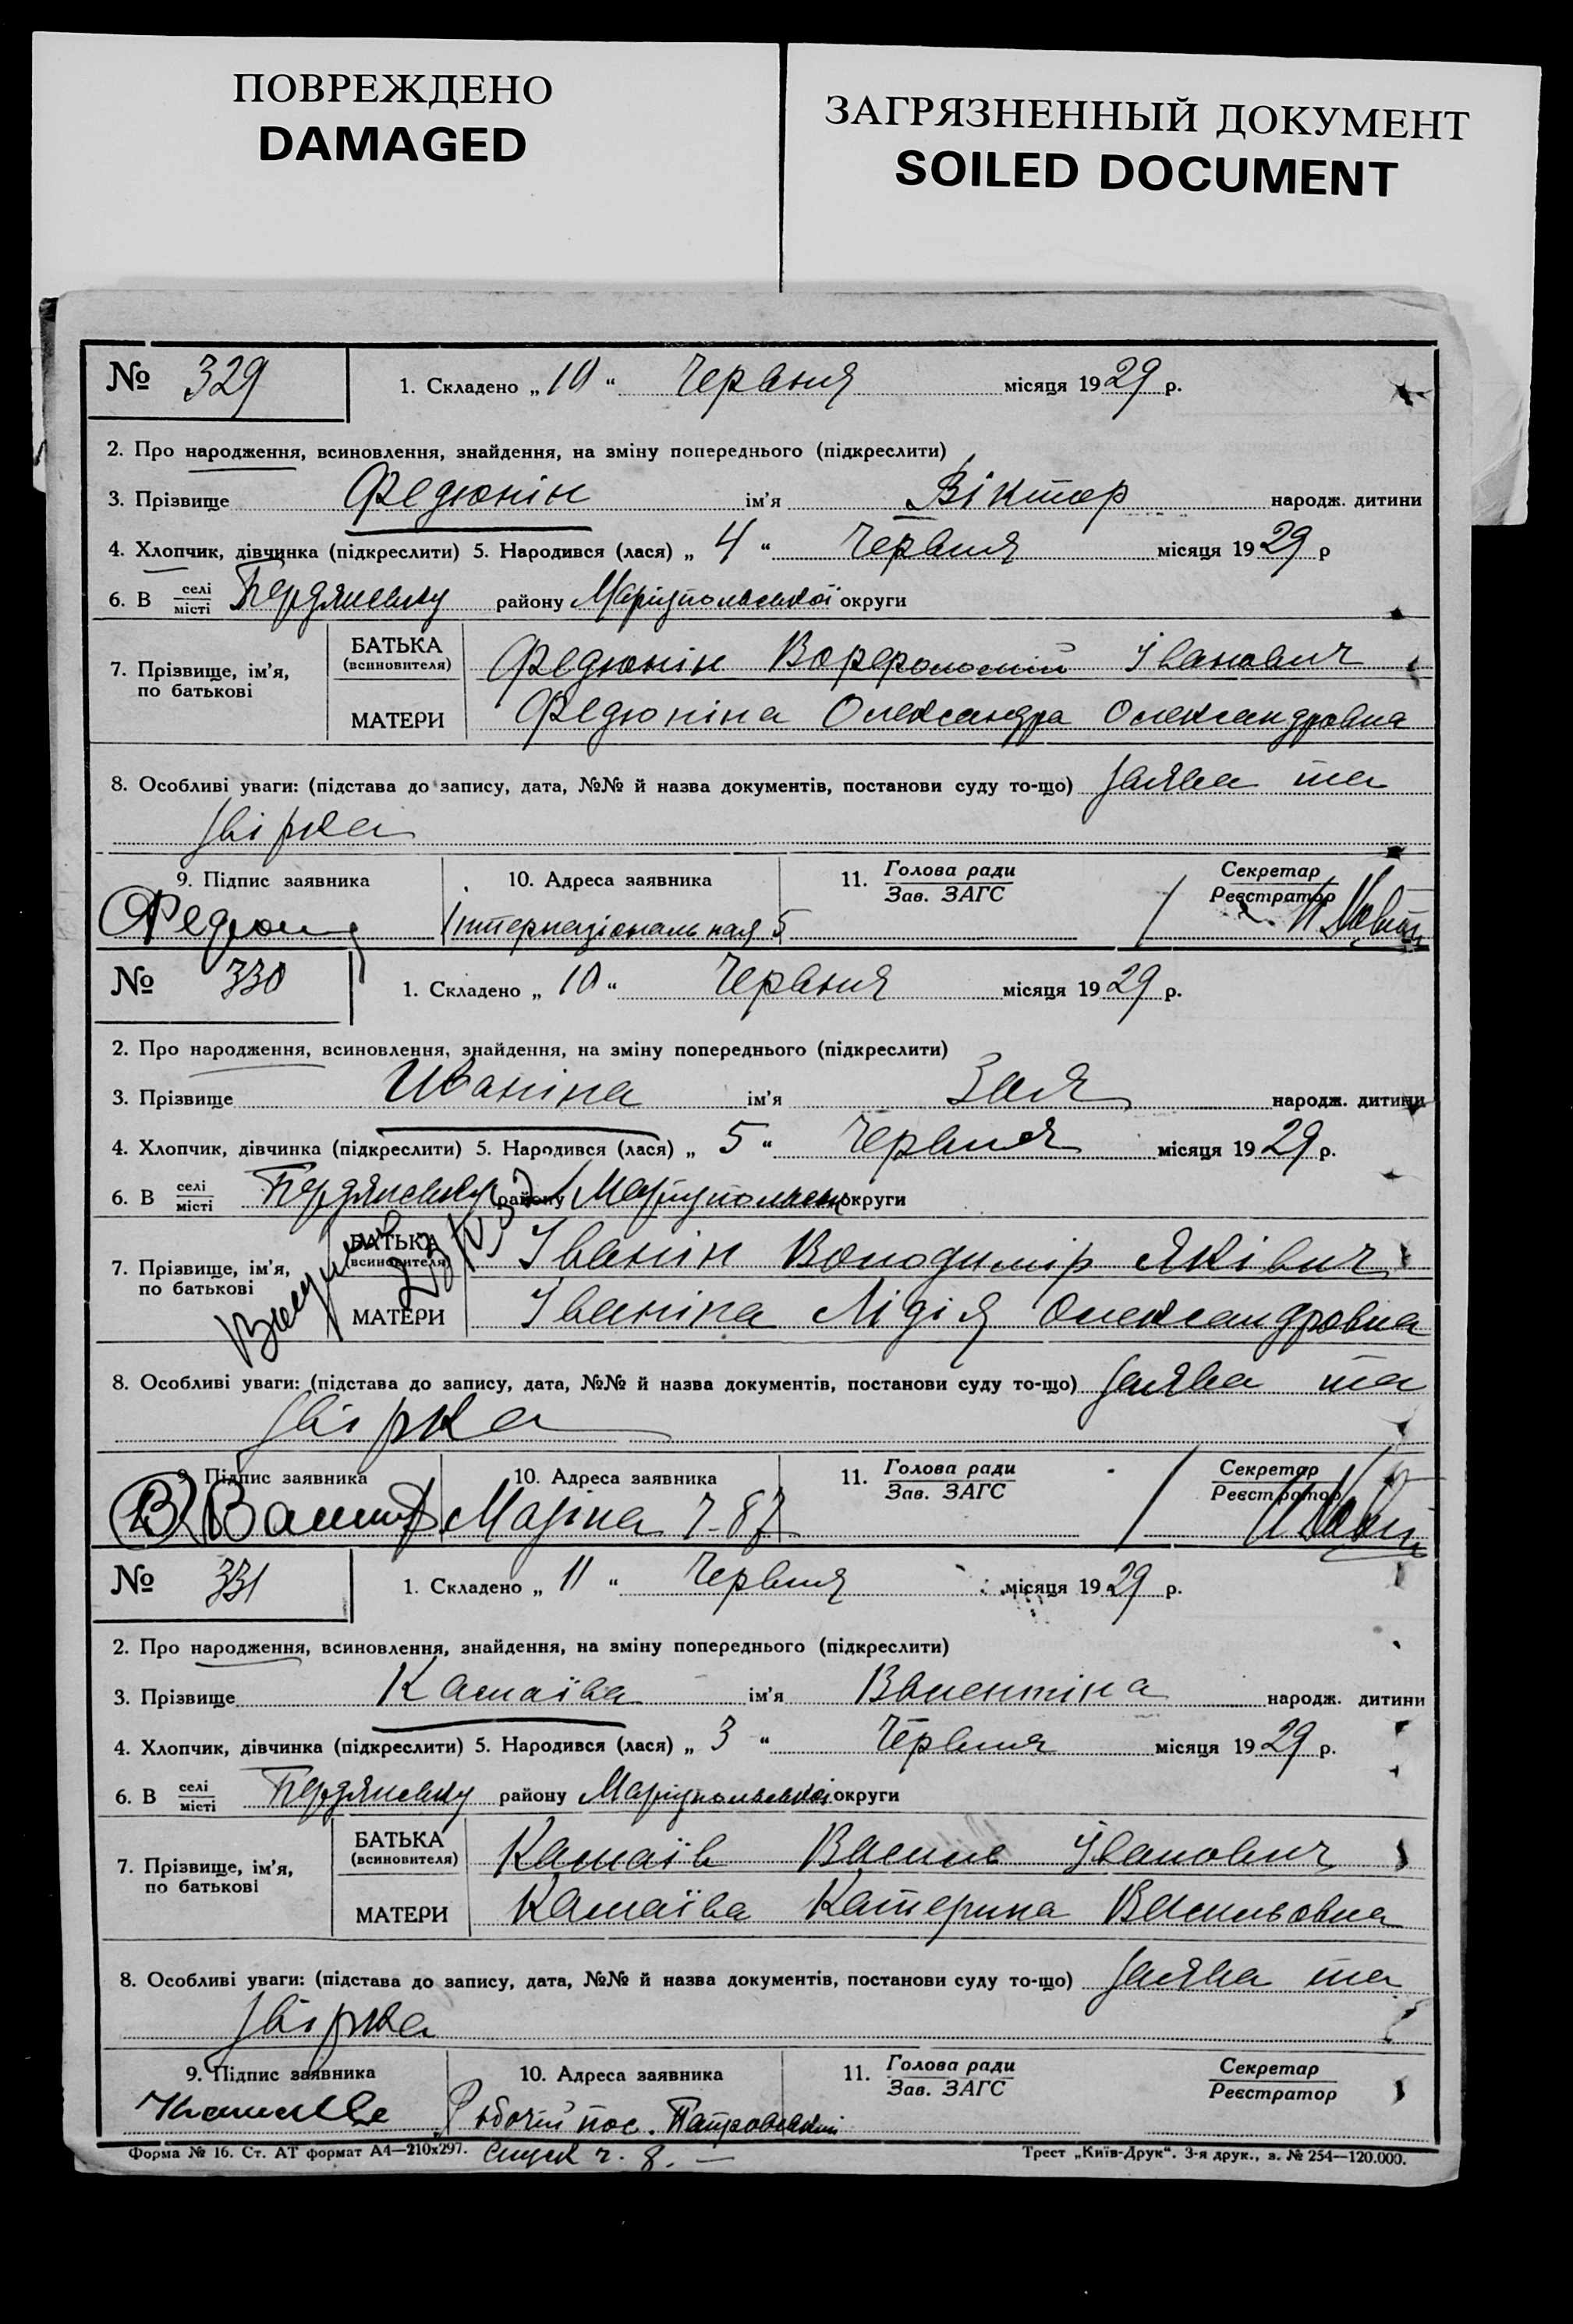 ПОВРЕЖДЕНО
DAMAGED
ЗАГРЯЗНЕННЫЙ ДОКУМЕНТ
SOILED DOCUMENT
№ 329 1. Складено „ 10 “ Червня місяця 1929 р.
2. Про народження, всиновлення, знайдення, на зміну попереднього (підкреслити)
3. Прізвище Федюнін ім'я Віктор народж. дитини
4. Хлопчик, дівчинка (підкреслити) 5. Народився (лася) „ 4 “ Червня місяця 1929 р
6. В селі місті Бердянську району Маріупольської округи
7. Прізвище, ім'я, по батькові
БАТЬКА (всиновителя) Федюнін Іванович
МАТЕРИ Федюніна Олександра Олександровна
8. Особливі уваги: (підстава до запису, дата, №№ й назва документів, постанови суду то-що) Заява та
звірка
9. Підпис заявника 10. Адреса заявника 11. Голова ради Зав. ЗАГС Секретар Реєстратор
Інтернаціональная 5
№ 330 1. Складено „ 10 “ Червня місяця 1929 р.
2. Про народження, всиновлення, знайдення, на зміну попереднього (підкреслити)
3. Прізвище Иваніна ім'я Зая народж. дитини
4. Хлопчик, дівчинка (підкреслити) 5. Народився (лася) „ 5 “ Червня місяця 1929 р.
6. В селі місті Бердянську району Маріупольськ округи
7. Прізвище, ім'я, по батькові
БАТЬКА (всиновителя) Іванін Володимір Яківич
МАТЕРИ Іваніна Лідія Олександровна
8. Особливі уваги: (підстава до запису, дата, №№ й назва документів, постанови суду то-що) Заява та
звірка
9. Підпис заявника 10. Адреса заявника 11. Голова ради Зав. ЗАГС Секретар Реєстратор
№ 331 1. Складено „ 11 “ Червня місяця 1929 р.
2. Про народження, всиновлення, знайдення, на зміну попереднього (підкреслити)
3. Прізвище Камаїва ім'я Валентіна народж. дитини
4. Хлопчик, дівчинка (підкреслити) 5. Народився (лася) „ 3 “ Червня місяця 1929 р.
6. В селі місті Бердянську району Маріупольської округи
7. Прізвище, ім'я, по батькові
БАТЬКА (всиновителя) Камаїв Василь Іванович
МАТЕРИ Камаїва Катерина Васильовна
8. Особливі уваги: (підстава до запису, дата, №№ й назва документів, постанови суду то-що) Заява та
звірка
9. Підпис заявника 10. Адреса заявника 11. Голова ради Зав. ЗАГС Секретар Реєстратор
пос.
Форма № 16. Ст. АТ формат А4—210х297. Трест „Київ-Друк“. 3-я друк., з. № 254—120.000.